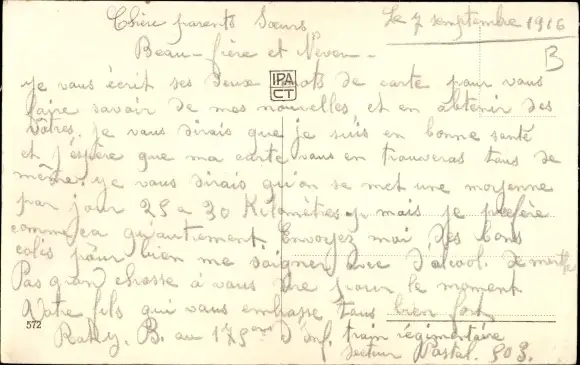 Chère parents Sœurs
Le 7 semptembre 1916
Beau-frère et Neveu -
B
Je vous écrit ses deux mots de carte pour vous
IPA
CT
faire savoir de mes nouvelles et en obtenir des
vôtres, je vous dirais que je suis en bonne santé
et j'éspère que ma carte vous en trouveras tous de
même, je vous dirais qu'on se met une moyenne
par jour 25 a 30 Kilomètres mais je préfère
comme ça qu'autrement. Envoyez moi des bons
colis pour bien me soigner avec d'alcool. de
Pas gran chosse à vous dire pour le moment
Votre fils qui vous embrasse tous bien fort
B. au 175ème d'inf. train régimentaire
572
Secteur Postal. 503.